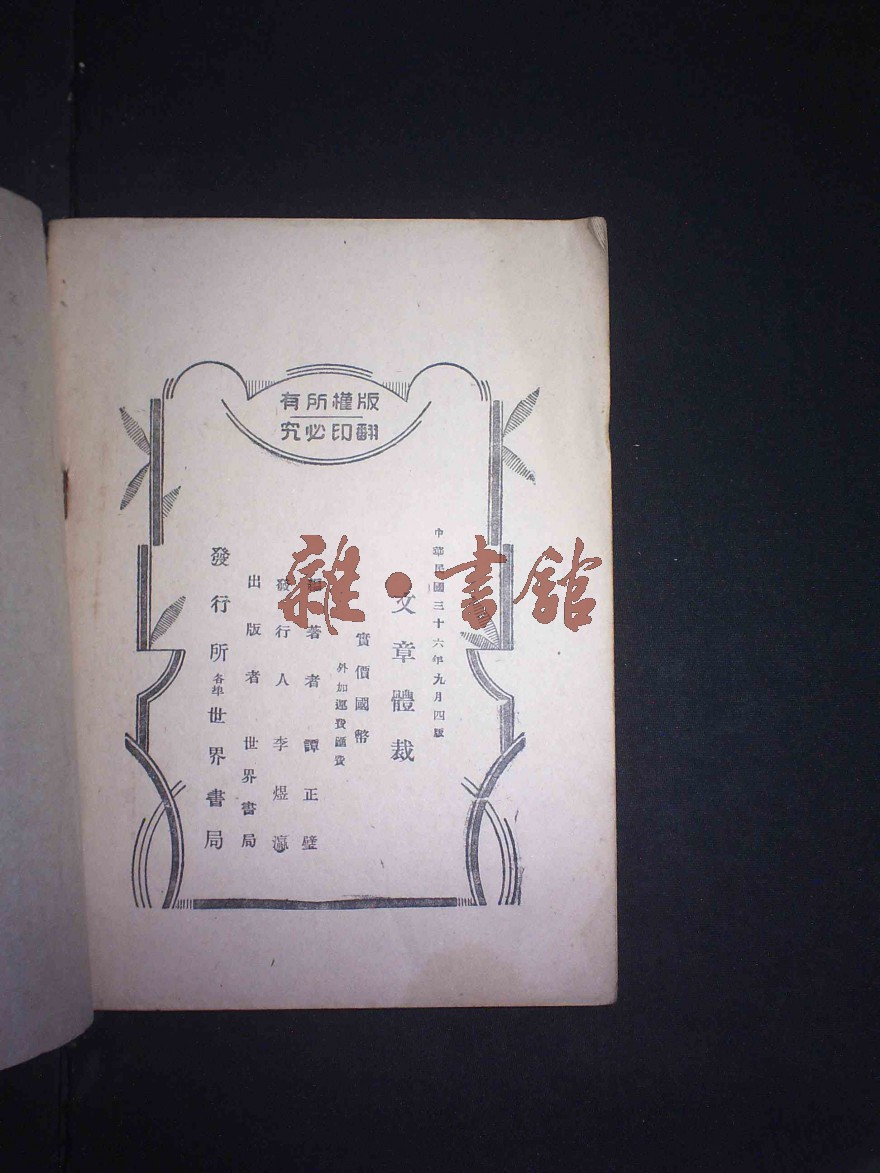 版權所有
翻印必究
中華民國三十六年九月四版
文章體裁
實價國幣
外加運費匯費
編著者 譚正璧
發行人 李煜瀛
出版者 世界書局
發行所 各埠 世界書局
雜·書館